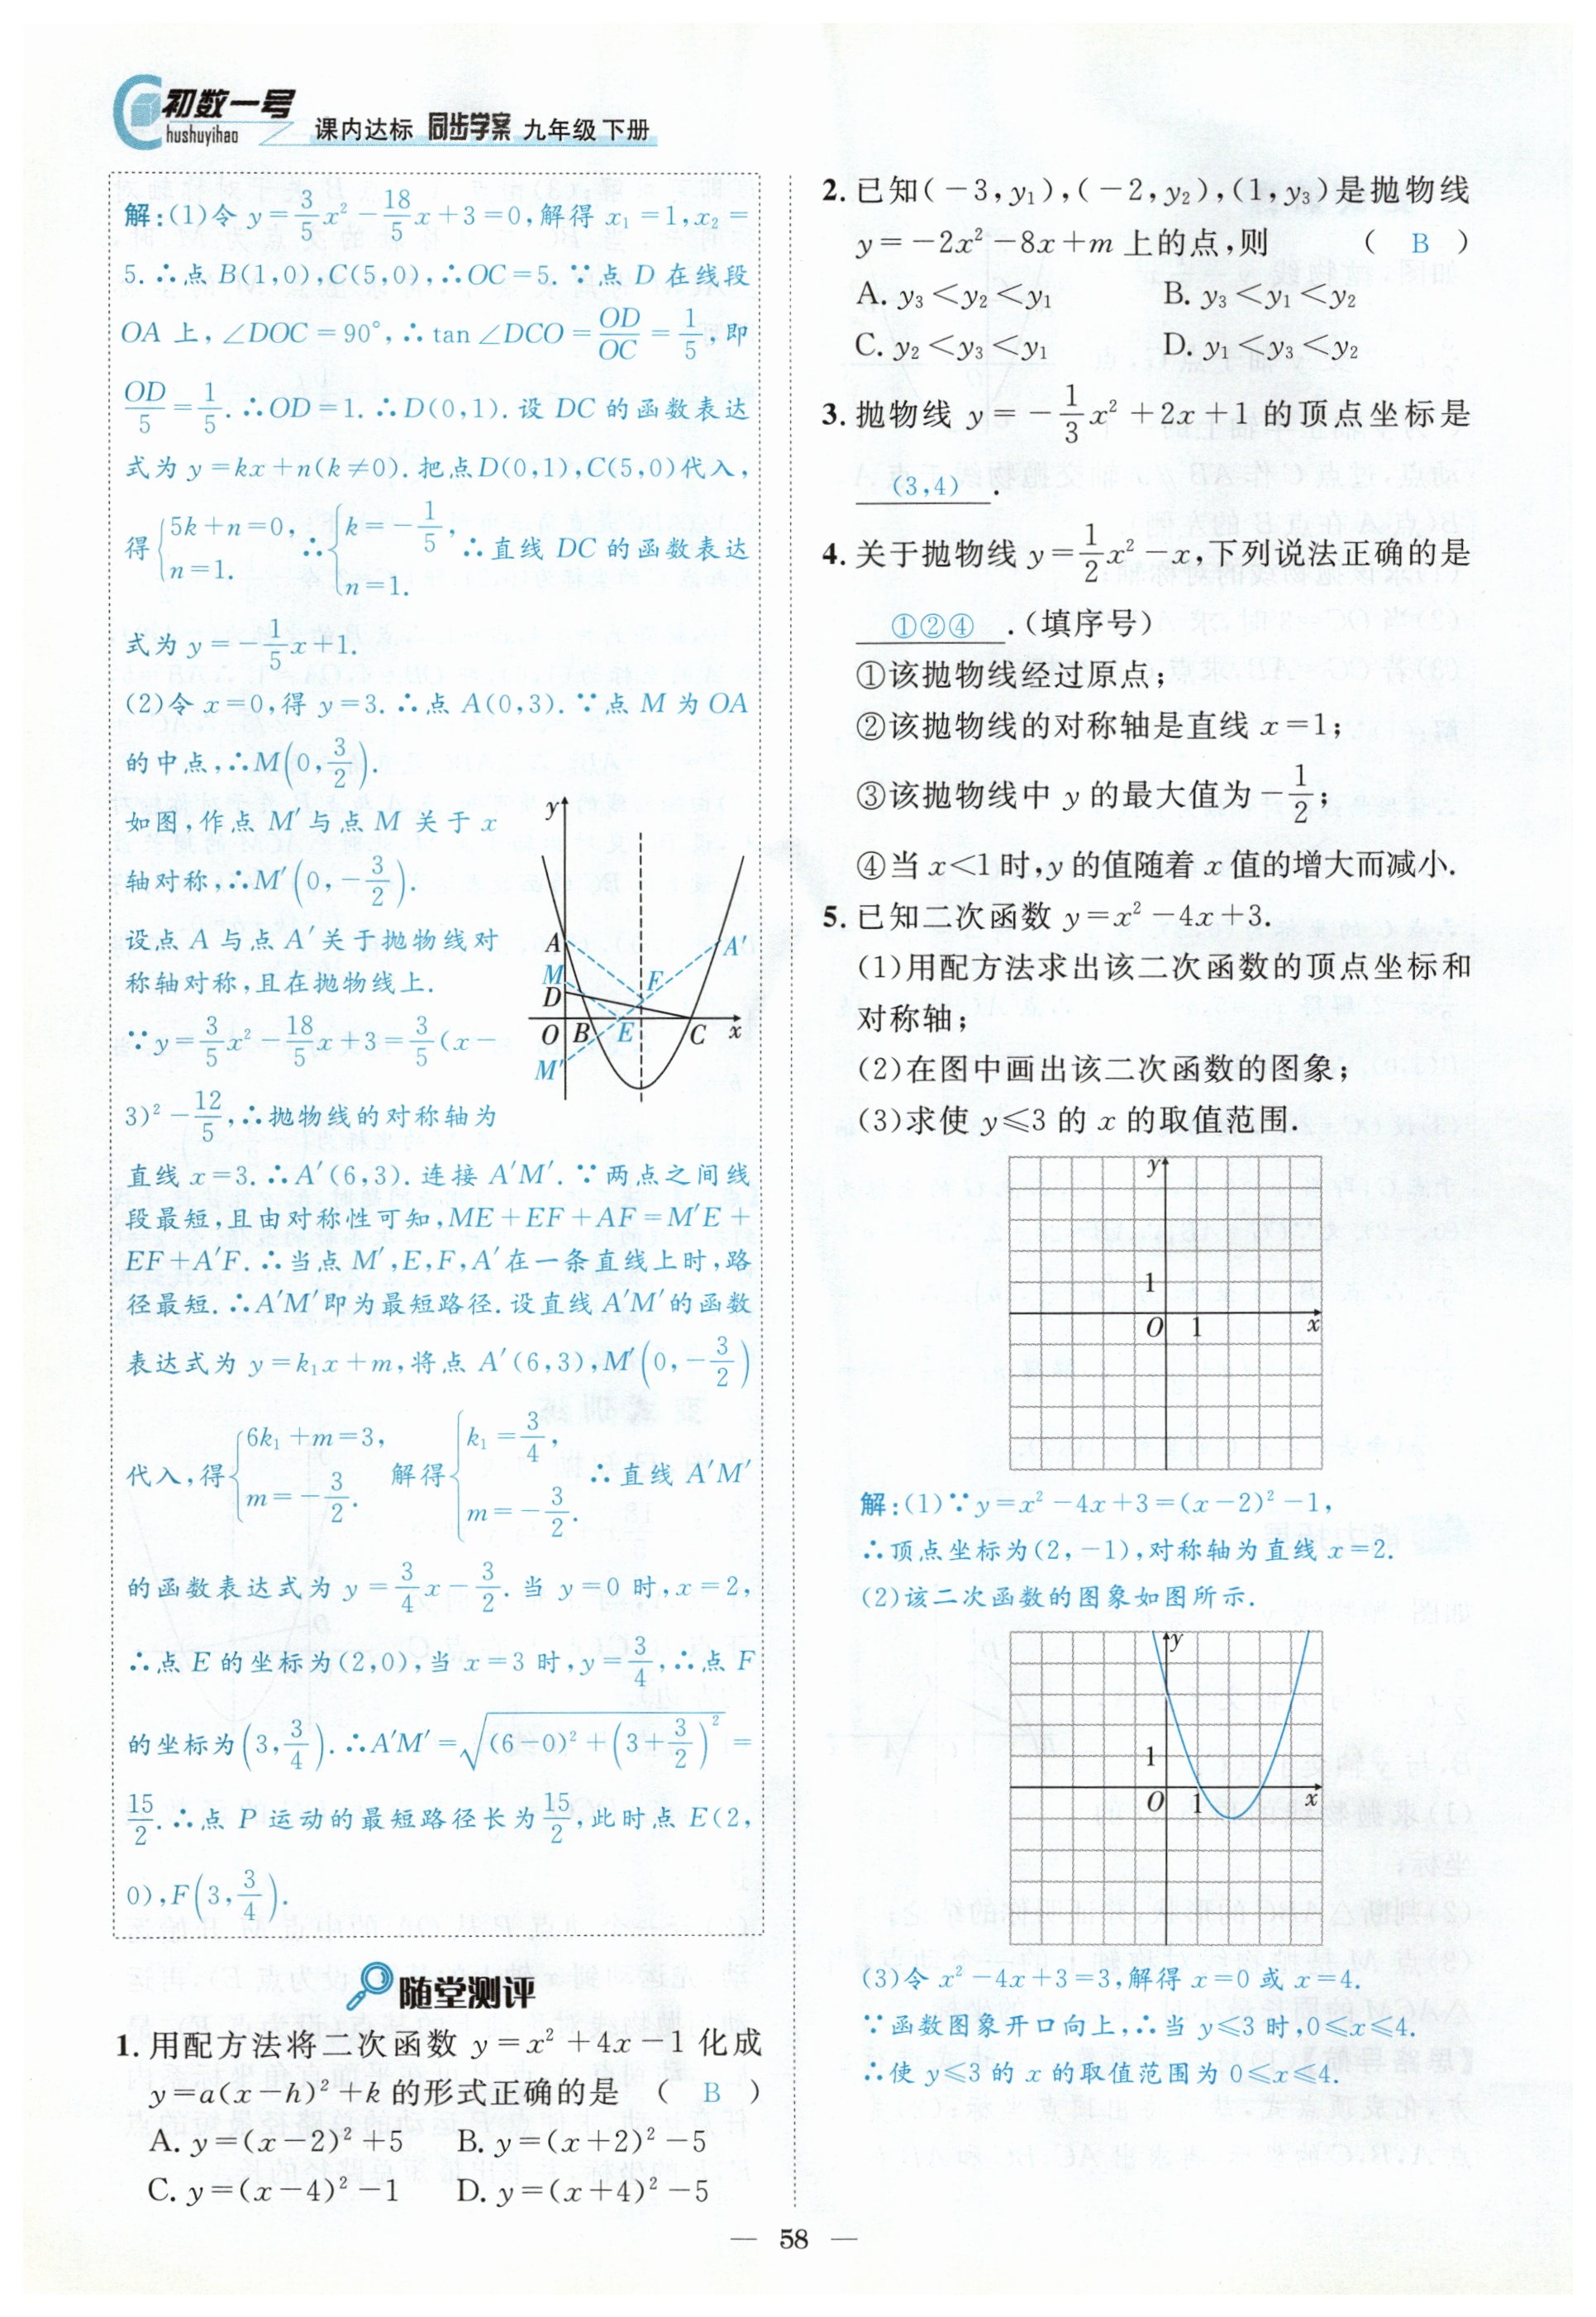 初数一号
hushuyihao
课内达标 同步学案 九年级 下册
解:(1)令 y=3/5x²-18/5x+3=0,解得 x₁=1,x₂=
5.∴点 B(1,0),C(5,0),∴OC=5.∵点 D 在线段
OA 上,∠DOC=90°,∴tan ∠DCO=OD/OC=1/5,即
OD/5=1/5.∴OD=1.∴D(0,1).设 DC 的函数表达
式为 y=kx+n(k≠0).把点D(0,1),C(5,0)代入,
得{5k+n=0, n=1. ∴{k=-1/5, n=1. ∴直线 DC 的函数表达
式为 y=-1/5x+1.
(2)令 x=0,得 y=3.∴点 A(0,3).∵点 M 为 OA
的中点,∴M(0,3/2).
如图,作点 M′与点 M 关于 x
轴对称,∴M′(0,-3/2).
设点 A 与点 A′关于抛物线对
称轴对称,且在抛物线上.
∵y=3/5x²-18/5x+3=3/5(x-
3)²-12/5,∴抛物线的对称轴为
y
A
A′
M
F
D
O
B
E
C
x
M′
直线 x=3.∴A′(6,3).连接 A′M′.∵两点之间线
段最短,且由对称性可知,ME+EF+AF=M′E+
EF+A′F.∴当点 M′,E,F,A′在一条直线上时,路
径最短.∴A′M′即为最短路径.设直线 A′M′的函数
表达式为 y=k₁x+m,将点 A′(6,3),M′(0,-3/2)
代入,得{6k₁+m=3, m=-3/2. 解得{k₁=3/4, m=-3/2. ∴直线 A′M′
的函数表达式为 y=3/4x-3/2.当 y=0 时,x=2,
∴点 E 的坐标为(2,0),当 x=3 时,y=3/4,∴点 F
的坐标为(3,3/4).∴A′M′=√((6-0)²+(3+3/2)²)=
15/2.∴点 P 运动的最短路径长为15/2,此时点 E(2,
0),F(3,3/4).
随堂测评
1. 用配方法将二次函数 y=x²+4x-1 化成
y=a(x-h)²+k 的形式正确的是 ( B )
A. y=(x-2)²+5 B. y=(x+2)²-5
C. y=(x-4)²-1 D. y=(x+4)²-5
2. 已知(-3,y₁),(-2,y₂),(1,y₃)是抛物线
y=-2x²-8x+m 上的点,则 ( B )
A. y₃<y₂<y₁ B. y₃<y₁<y₂
C. y₂<y₃<y₁ D. y₁<y₃<y₂
3. 抛物线 y=-1/3x²+2x+1 的顶点坐标是
(3,4).
4. 关于抛物线 y=1/2x²-x,下列说法正确的是
①②④.(填序号)
①该抛物线经过原点;
②该抛物线的对称轴是直线 x=1;
③该抛物线中 y 的最大值为-1/2;
④当 x<1时,y 的值随着 x 值的增大而减小.
5. 已知二次函数 y=x²-4x+3.
(1)用配方法求出该二次函数的顶点坐标和
对称轴;
(2)在图中画出该二次函数的图象;
(3)求使 y≤3 的 x 的取值范围.
y
1
O 1 x
解:(1)∵y=x²-4x+3=(x-2)²-1,
∴顶点坐标为(2,-1),对称轴为直线 x=2.
(2)该二次函数的图象如图所示.
y
1
O 1 x
(3)令 x²-4x+3=3,解得 x=0 或 x=4.
∵函数图象开口向上,∴当 y≤3 时,0≤x≤4.
∴使 y≤3 的 x 的取值范围为 0≤x≤4.
— 58 —